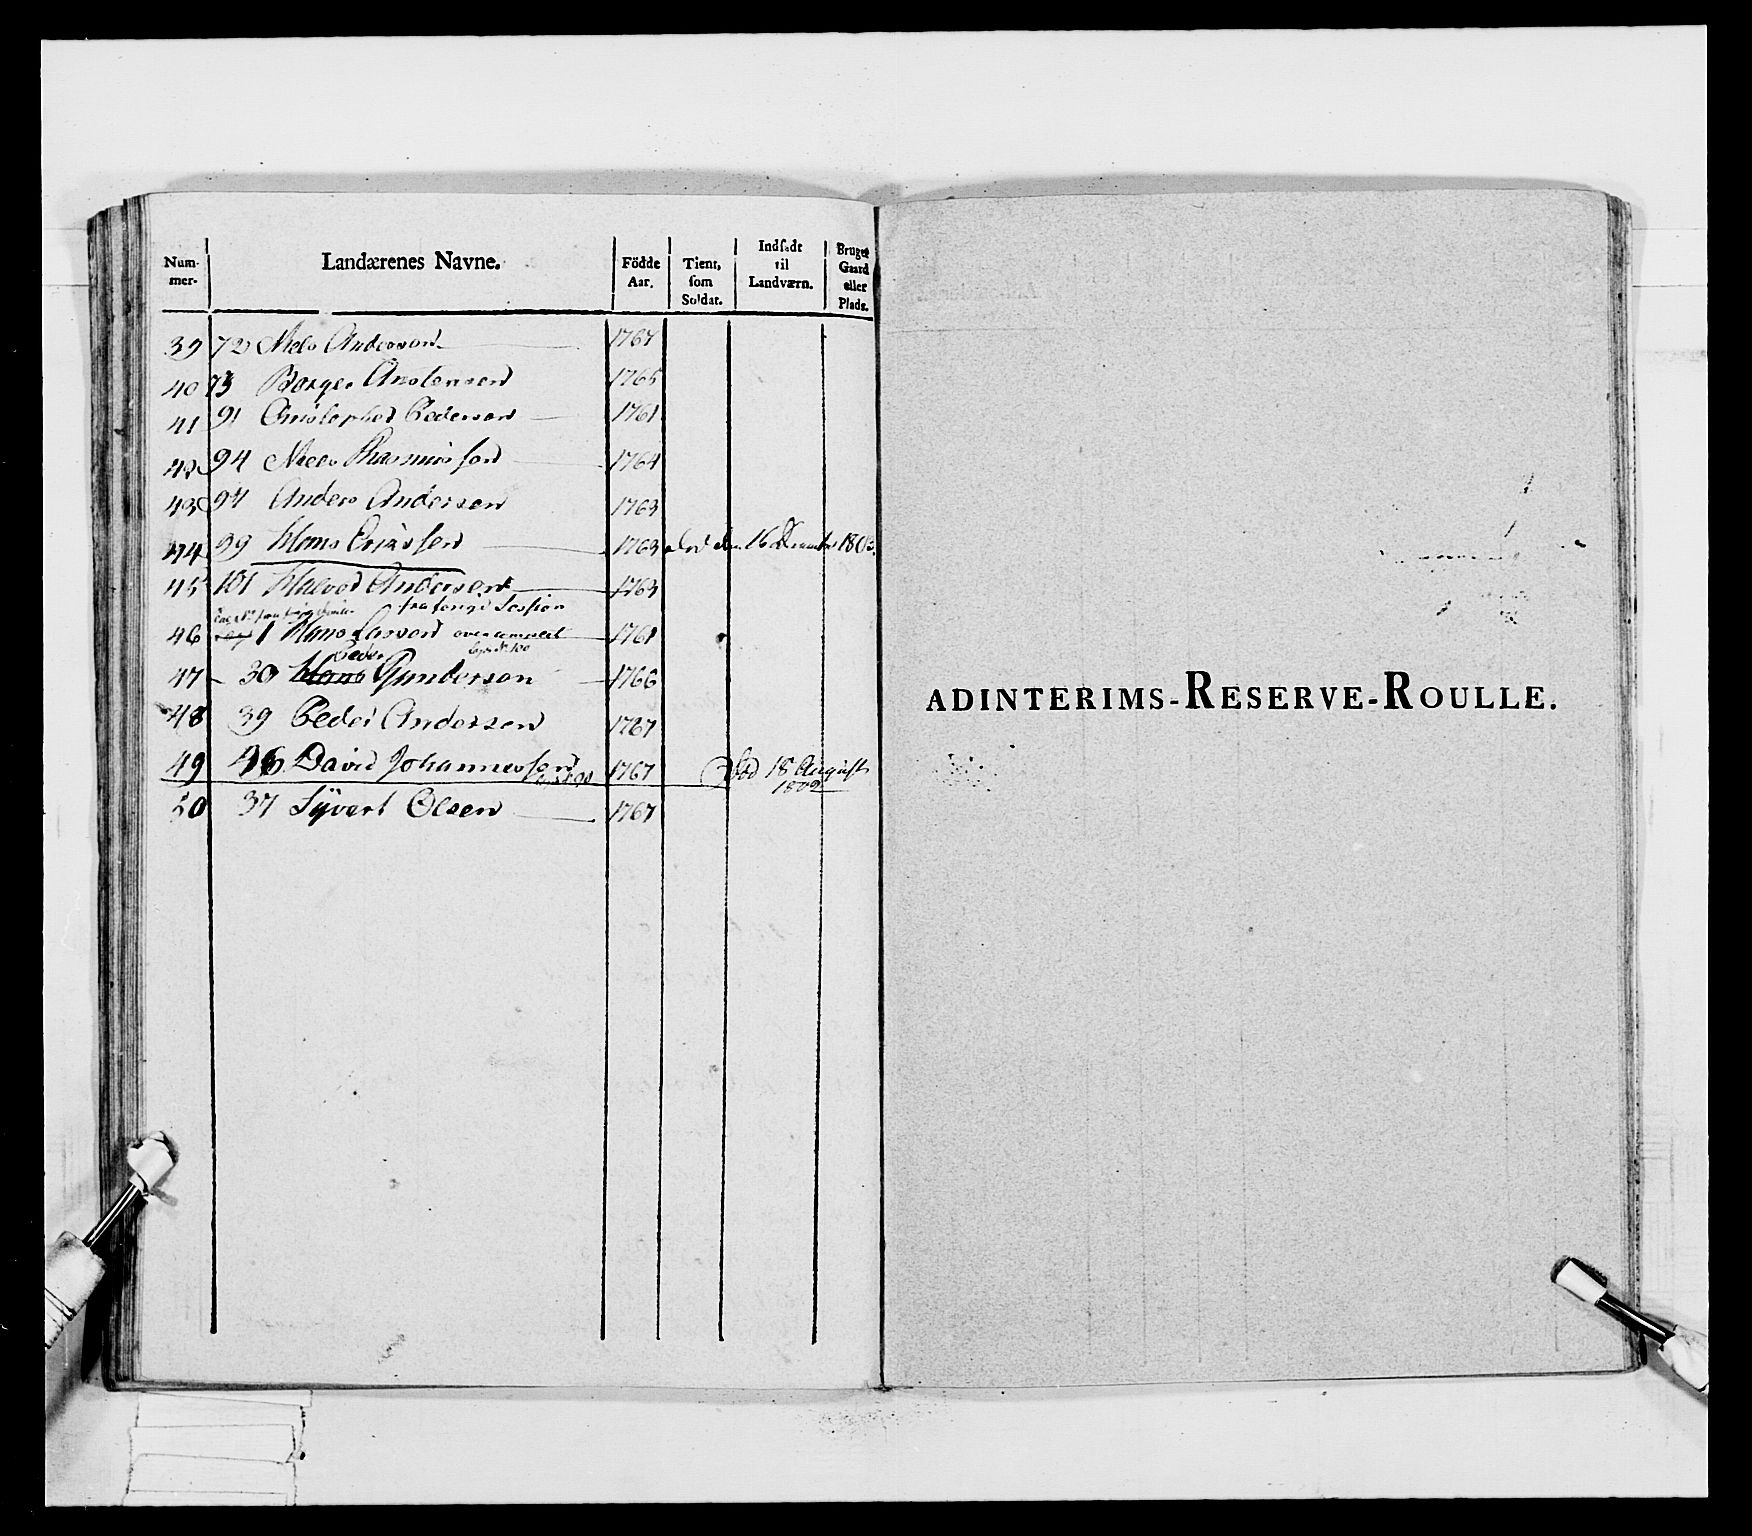 Num-
mer.
Landærenes Navne.
Födde
Aar.
Tient,
som
Soldat.
Indsadt
til
Landværn.
Bruget
Gaard
eller
Plads.
39 72 Niels Anderson 1767
40 73 Borger Anstensen 1765
41 91 Christopher Pederson 1761
42 94 Niels Rasmussen 1764
43 97 Anders Andersen 1763
44 99 Hans Erichsen 1763 død den 16 December 180
45 101 Halvor Andersen 1763
fra forige Session
46 1 Hans Larsen overcompleet 1761
Peder
47 30 Hans Gunderson 1766
48 39 Peder Andersen 1767
49 46 David Johannessen 1767 Död 18 August
1809
50 37 Syvert Olsen 1767
ADINTERIMS-RESERVE-ROULLE.